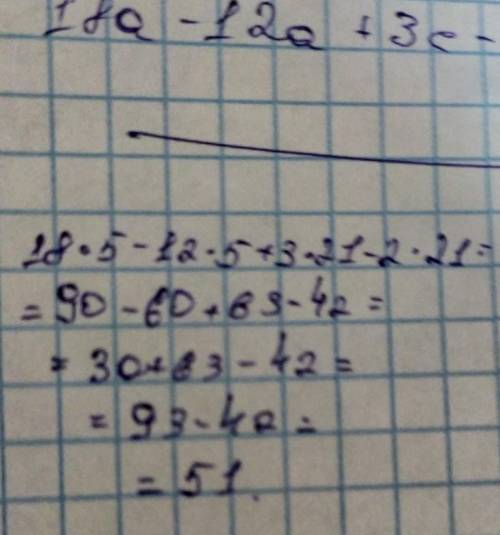 18a - 12a + 3c -
18·5-12·5+3·21-2·21=
=90-60+63-42=
=30+63-42=
=93-42=
=51.